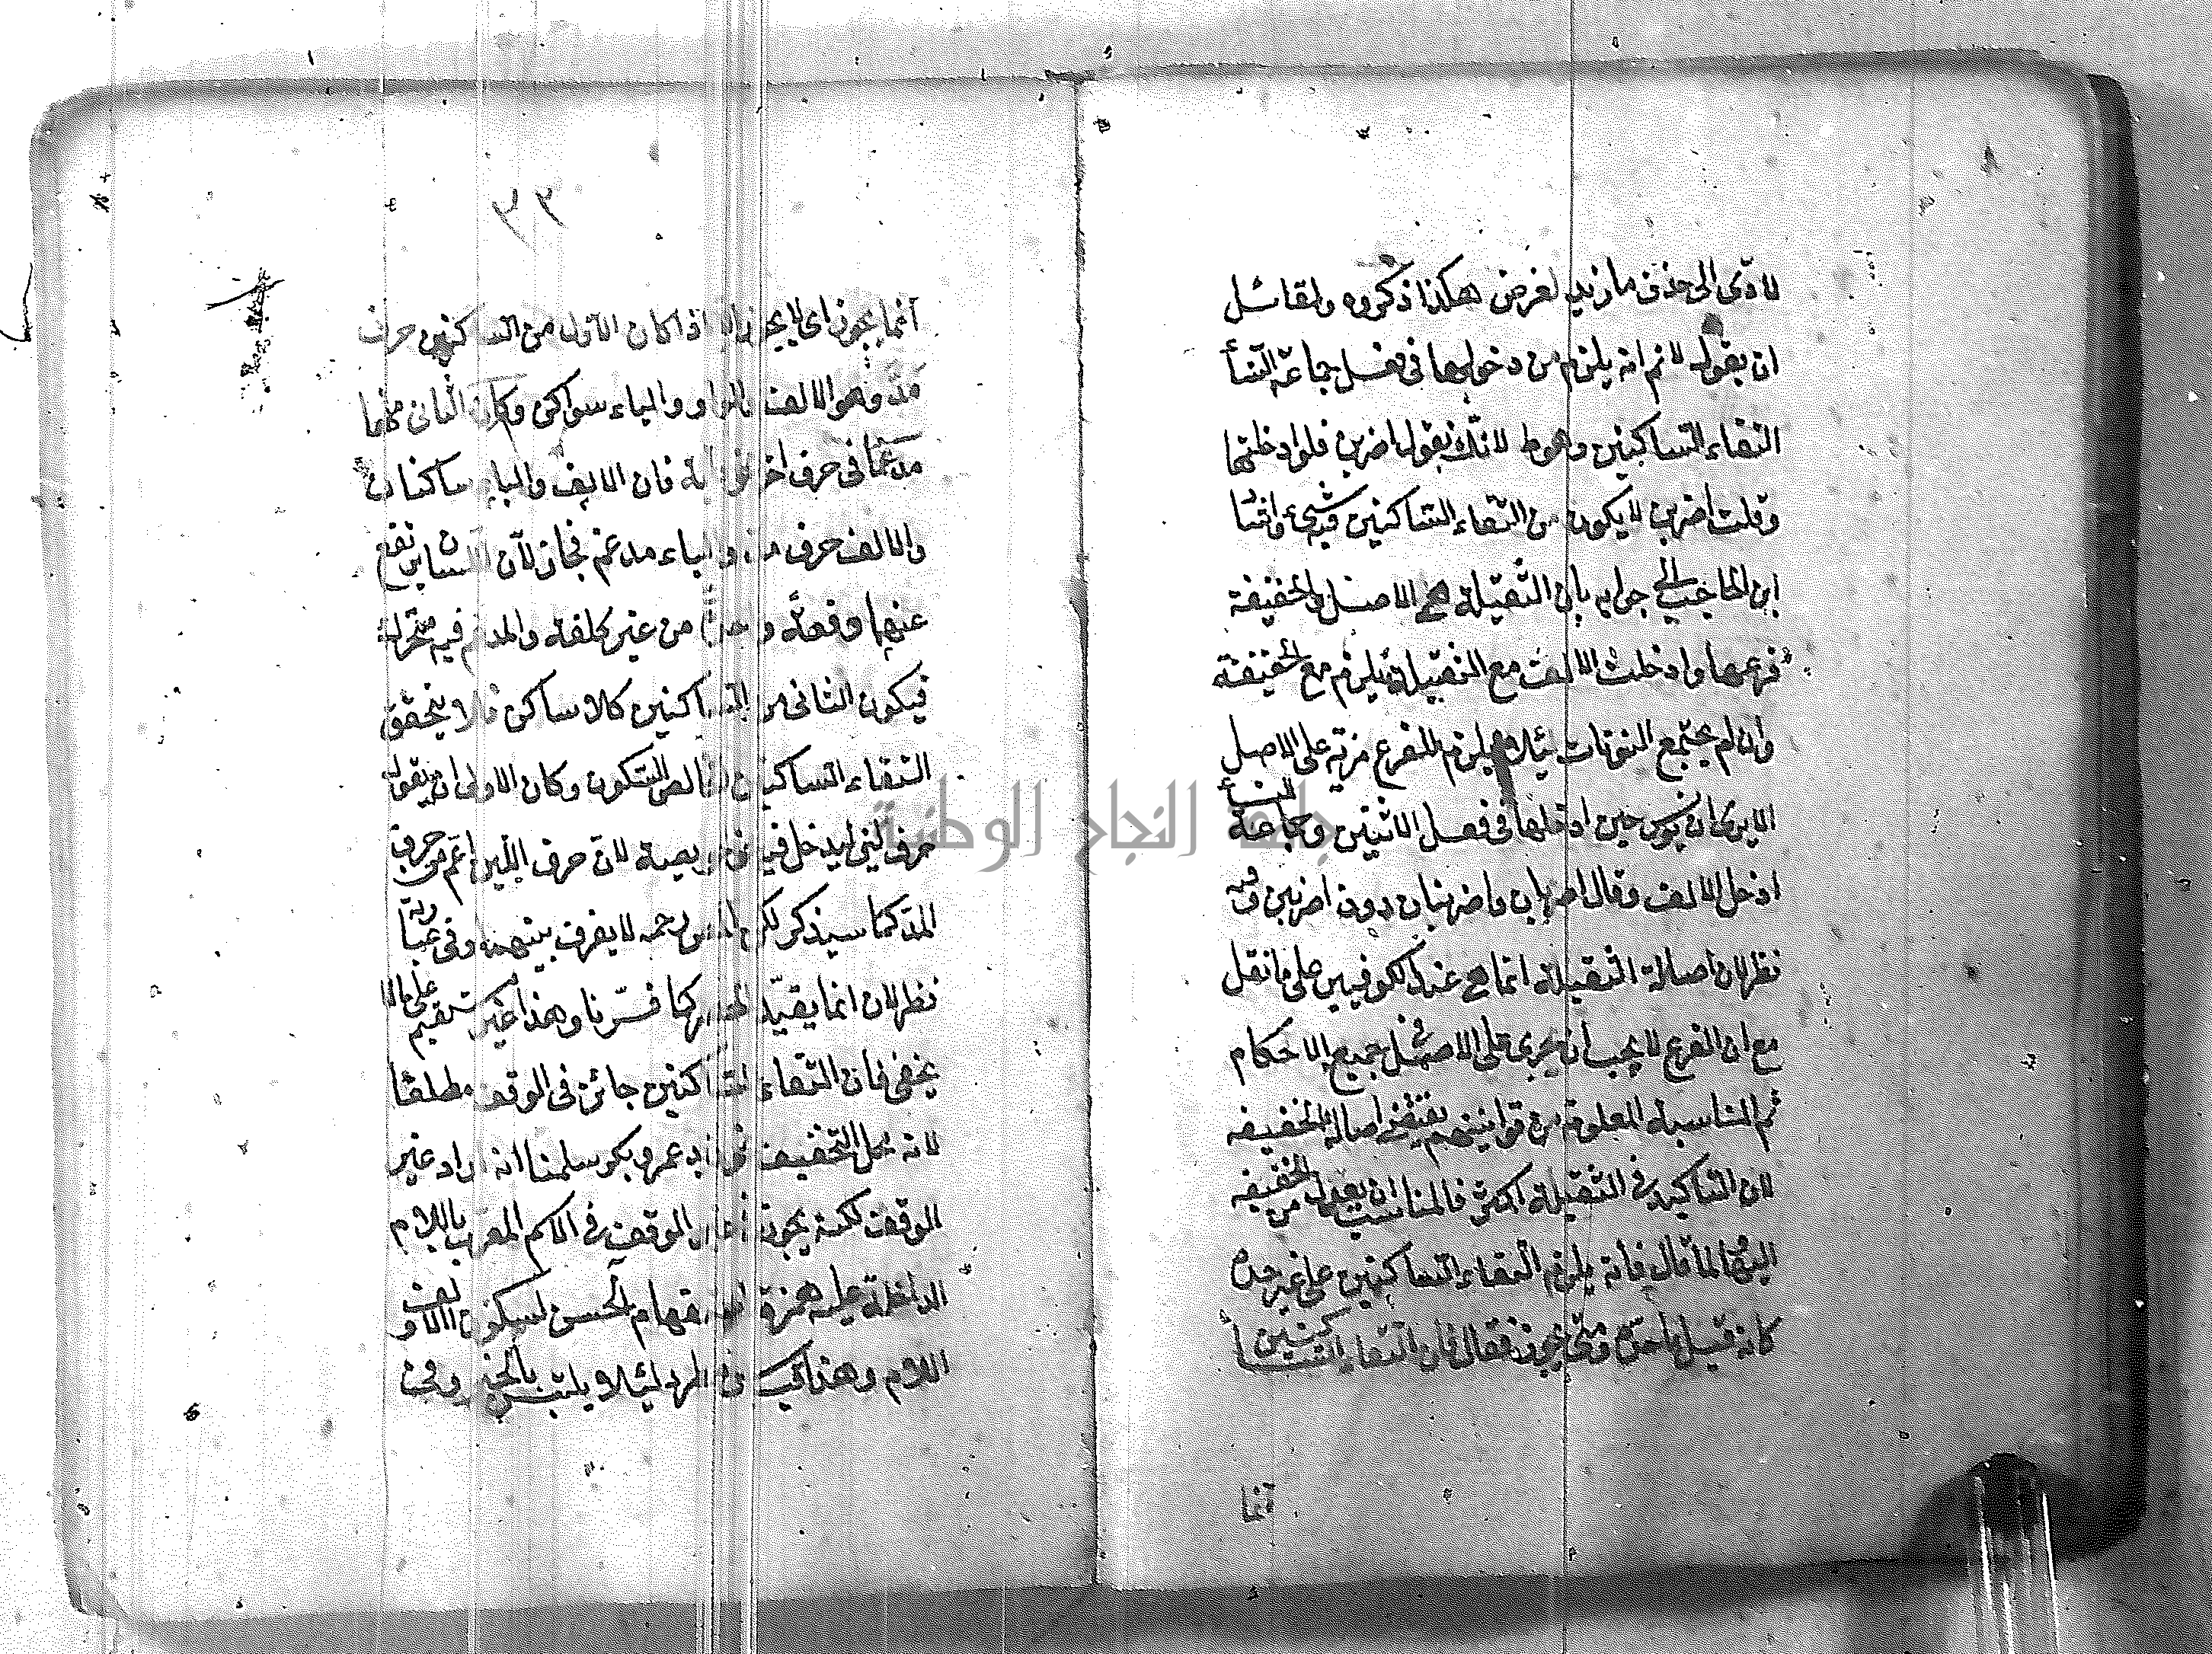 لادّى الى حذف ما زيد لغرض هكذا ذكروه ولقائل
ان يقول لانم انه يلزم من دخولها فى فعل جماعة النسأ
التقاء الساكنين وهو ظ لانك تقول اضربن فلو ادخلتها
وقلت اضربن لا يكون من التقاء الساكنين فى شئ واتنا
ابن الحاجب الى جوابه بان الثقيلة هى الاصل والخفيفة
فرعها وادخلت الالف مع الثقيلة فيلزم مع الخفيفة
وان لم يجتمع النونات لئلا يلزم للفرع مزية على الاصل
الا يرى ان يونس حين ادخلها فى فعل الاثنين وجماعة النسأ
ادخل الالف وقال اضربان واضربنان دون اضربن وفيه
نظر لان اصالة الثقيلة انما هى عند الكوفيين على ما نقل
مع ان الفرع لا يجب ان يجرى على الاصل فى جميع الاحكام
ثم المناسبة المعلومة من قوانينهم يقتضى اصالة الخفيفه
لان التاكيد فى الثقيلة اكثر فالمناسب ان يعدل من الخفيفه
اليها لما قال فانه يلزم التقاء الساكنين على غير حده
كانه قيل ما حده ومتى يجوز فقال فان التقاء الساكنين
انما
٩٣
انما يجوز اى لا يجوز الا اذا كان الاول من الساكنين حرف
مدّ وهو الالف والواو والياء سواكن وكان الثانى منهما
مدغما فى حرف اخر فان الالف والياء ساكنان
والالف حرف مد والياء مدغم فجاز لان اللسان يرتفع
عنهما دفعة واحدة من غير كلفة والمدغم فيه متحرك
فيكون الثانى من الساكنين كلا ساكن فلا يتحقق
التقاء الساكنين الخالص السكون وكان الاولى ان يقول
حرف لين ليدخل فيه خويصة لان حرف اللين اعم من حرف
المد كما سيذكر لكن المص رحمه لا يفرق بينهما وفى عبارته
نظر لان انما يفيد الحصر كما فسرنا وهذا غير مستقيم على ما لا
يخفى فان التقاء الساكنين جائز فى الوقف مطلقا
لانه محل التخفيف نحو زيد عمرو بكر سلمنا انه اراد غير
الوقف لكنه يجوز فى غير الوقف فى الاسم المعرف باللام
الداخلة عليه همزة الاستفهام الحسن بسكون الالف و
اللام وهذا قياس مطرد لئلا يلتبس بالخبر وفى
جامعة النجاح الوطنية